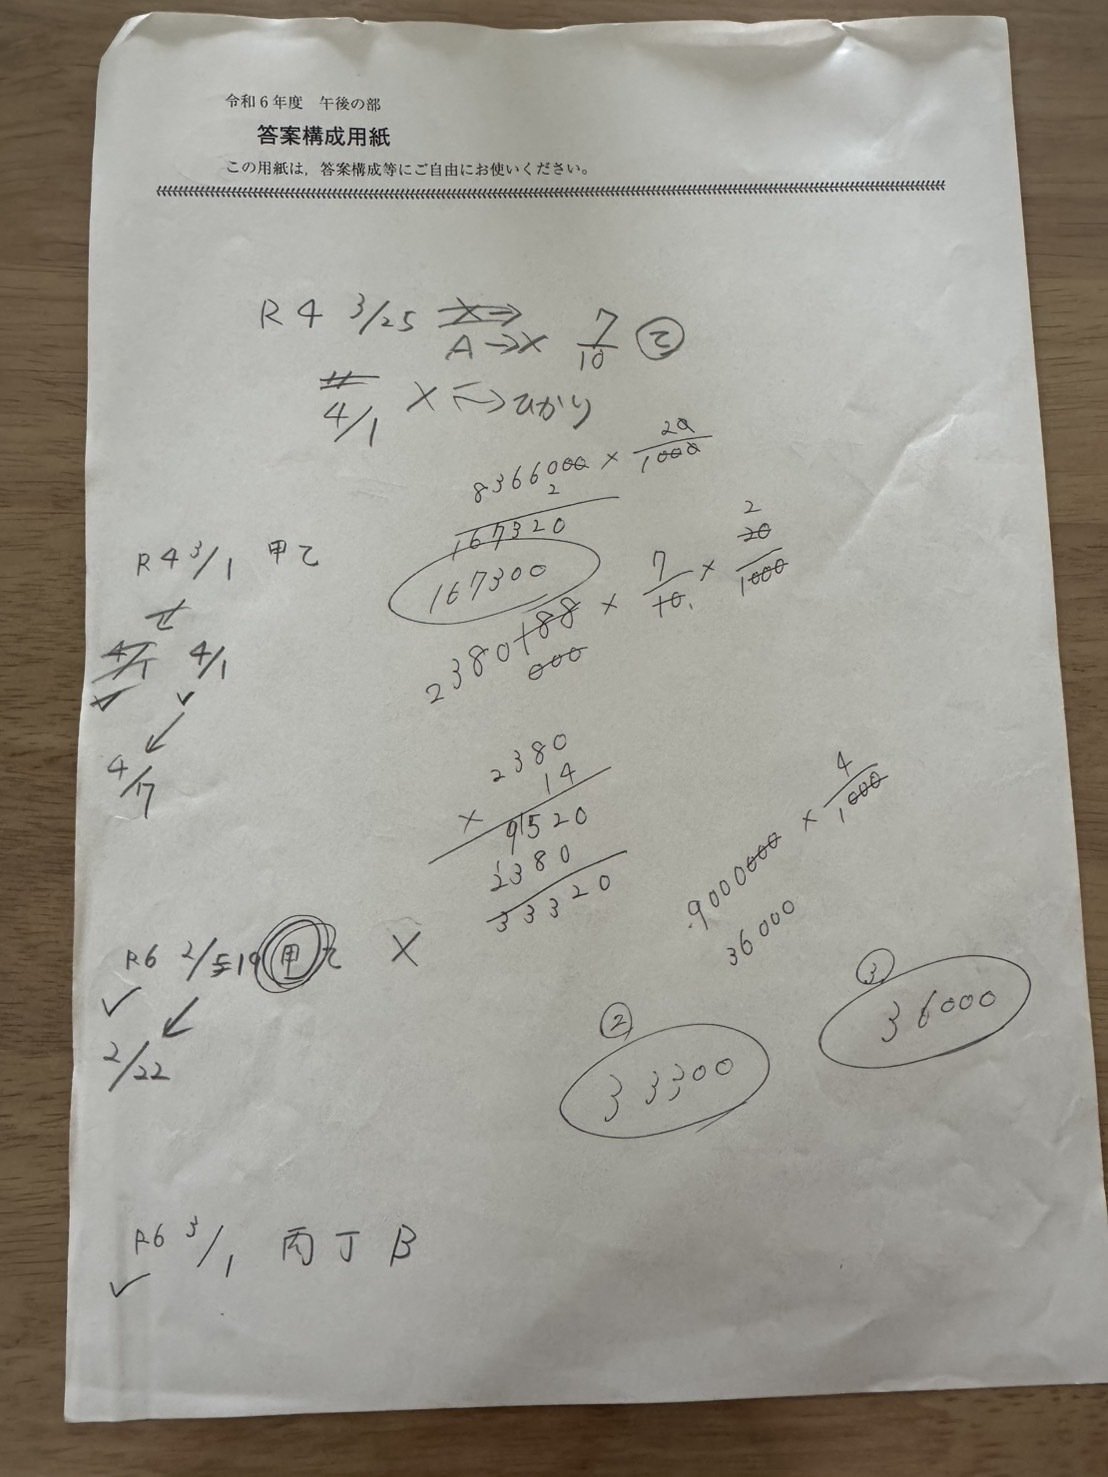 令和6年度 午後の部
答案構成用紙
この用紙は，答案構成等にご自由にお使いください。
R4 3/25 X→
A→X 7/10 乙
4/1 X → ひかり
8366000 × 20/1000
2
167320
167300
R4 3/1 甲乙
4/1 4/1
4/7
2380188000 × 7/10 × 20/1000
2
2380
× 14
9520
2380
33320
9000000 × 4/1000
36000
R6 2/5 19 甲乙 X
2/22
② 33300
③ 36000
R6 3/1 丙丁B